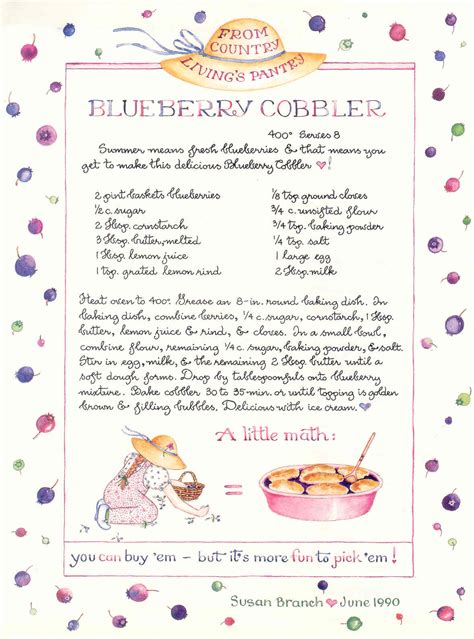 FROM
COUNTRY
LIVING'S PANTRY
BLUEBERRY COBBLER
400° Serves 8
Summer means fresh blueberries & that means you
get to make this delicious Blueberry Cobbler ♥!
2 pint baskets blueberries
½ c. sugar
2 tbsp. cornstarch
3 tbsp. butter, melted
1 tbsp. lemon juice
1 tsp. grated lemon rind
⅛ tsp. ground cloves
¾ c. unsifted flour
¾ tsp. baking powder
¼ tsp. salt
1 large egg
2 tbsp. milk
Heat oven to 400°. Grease an 8-in. round baking dish. In
baking dish, combine berries, ¼ c. sugar, cornstarch, 1 tbsp.
butter, lemon juice & rind, & cloves. In a small bowl,
combine flour, remaining ¼ c. sugar, baking powder, & salt.
Stir in egg, milk, & the remaining 2 tbsp. butter until a
soft dough forms. Drop by tablespoonfuls onto blueberry
mixture. Bake cobbler 30 to 35 min. or until topping is golden
brown & filling bubbles. Delicious with ice cream. ♥
A little math:
=
you can buy 'em – but it's more fun to pick 'em!
Susan Branch ♥ June 1990